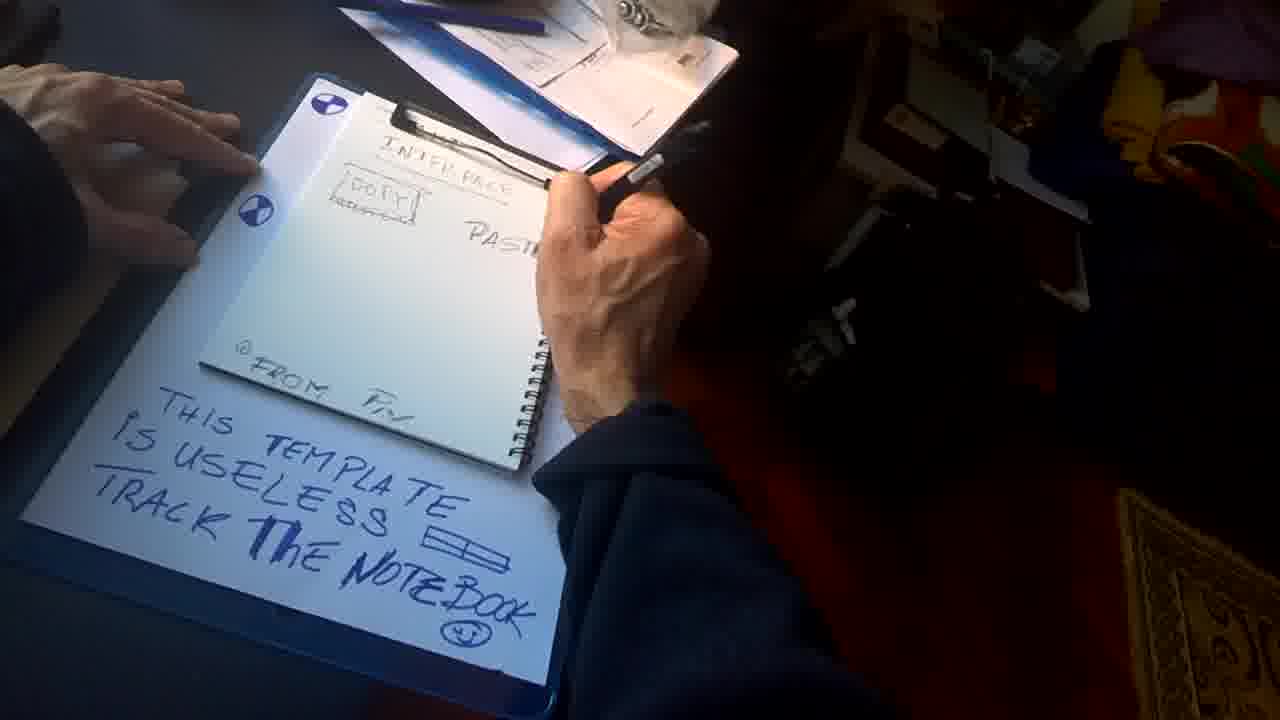 INTERFACE
COPY
PAST
FROM
THIS TEMPLATE
iS USELESS
TRACK THE NOTEBOOK